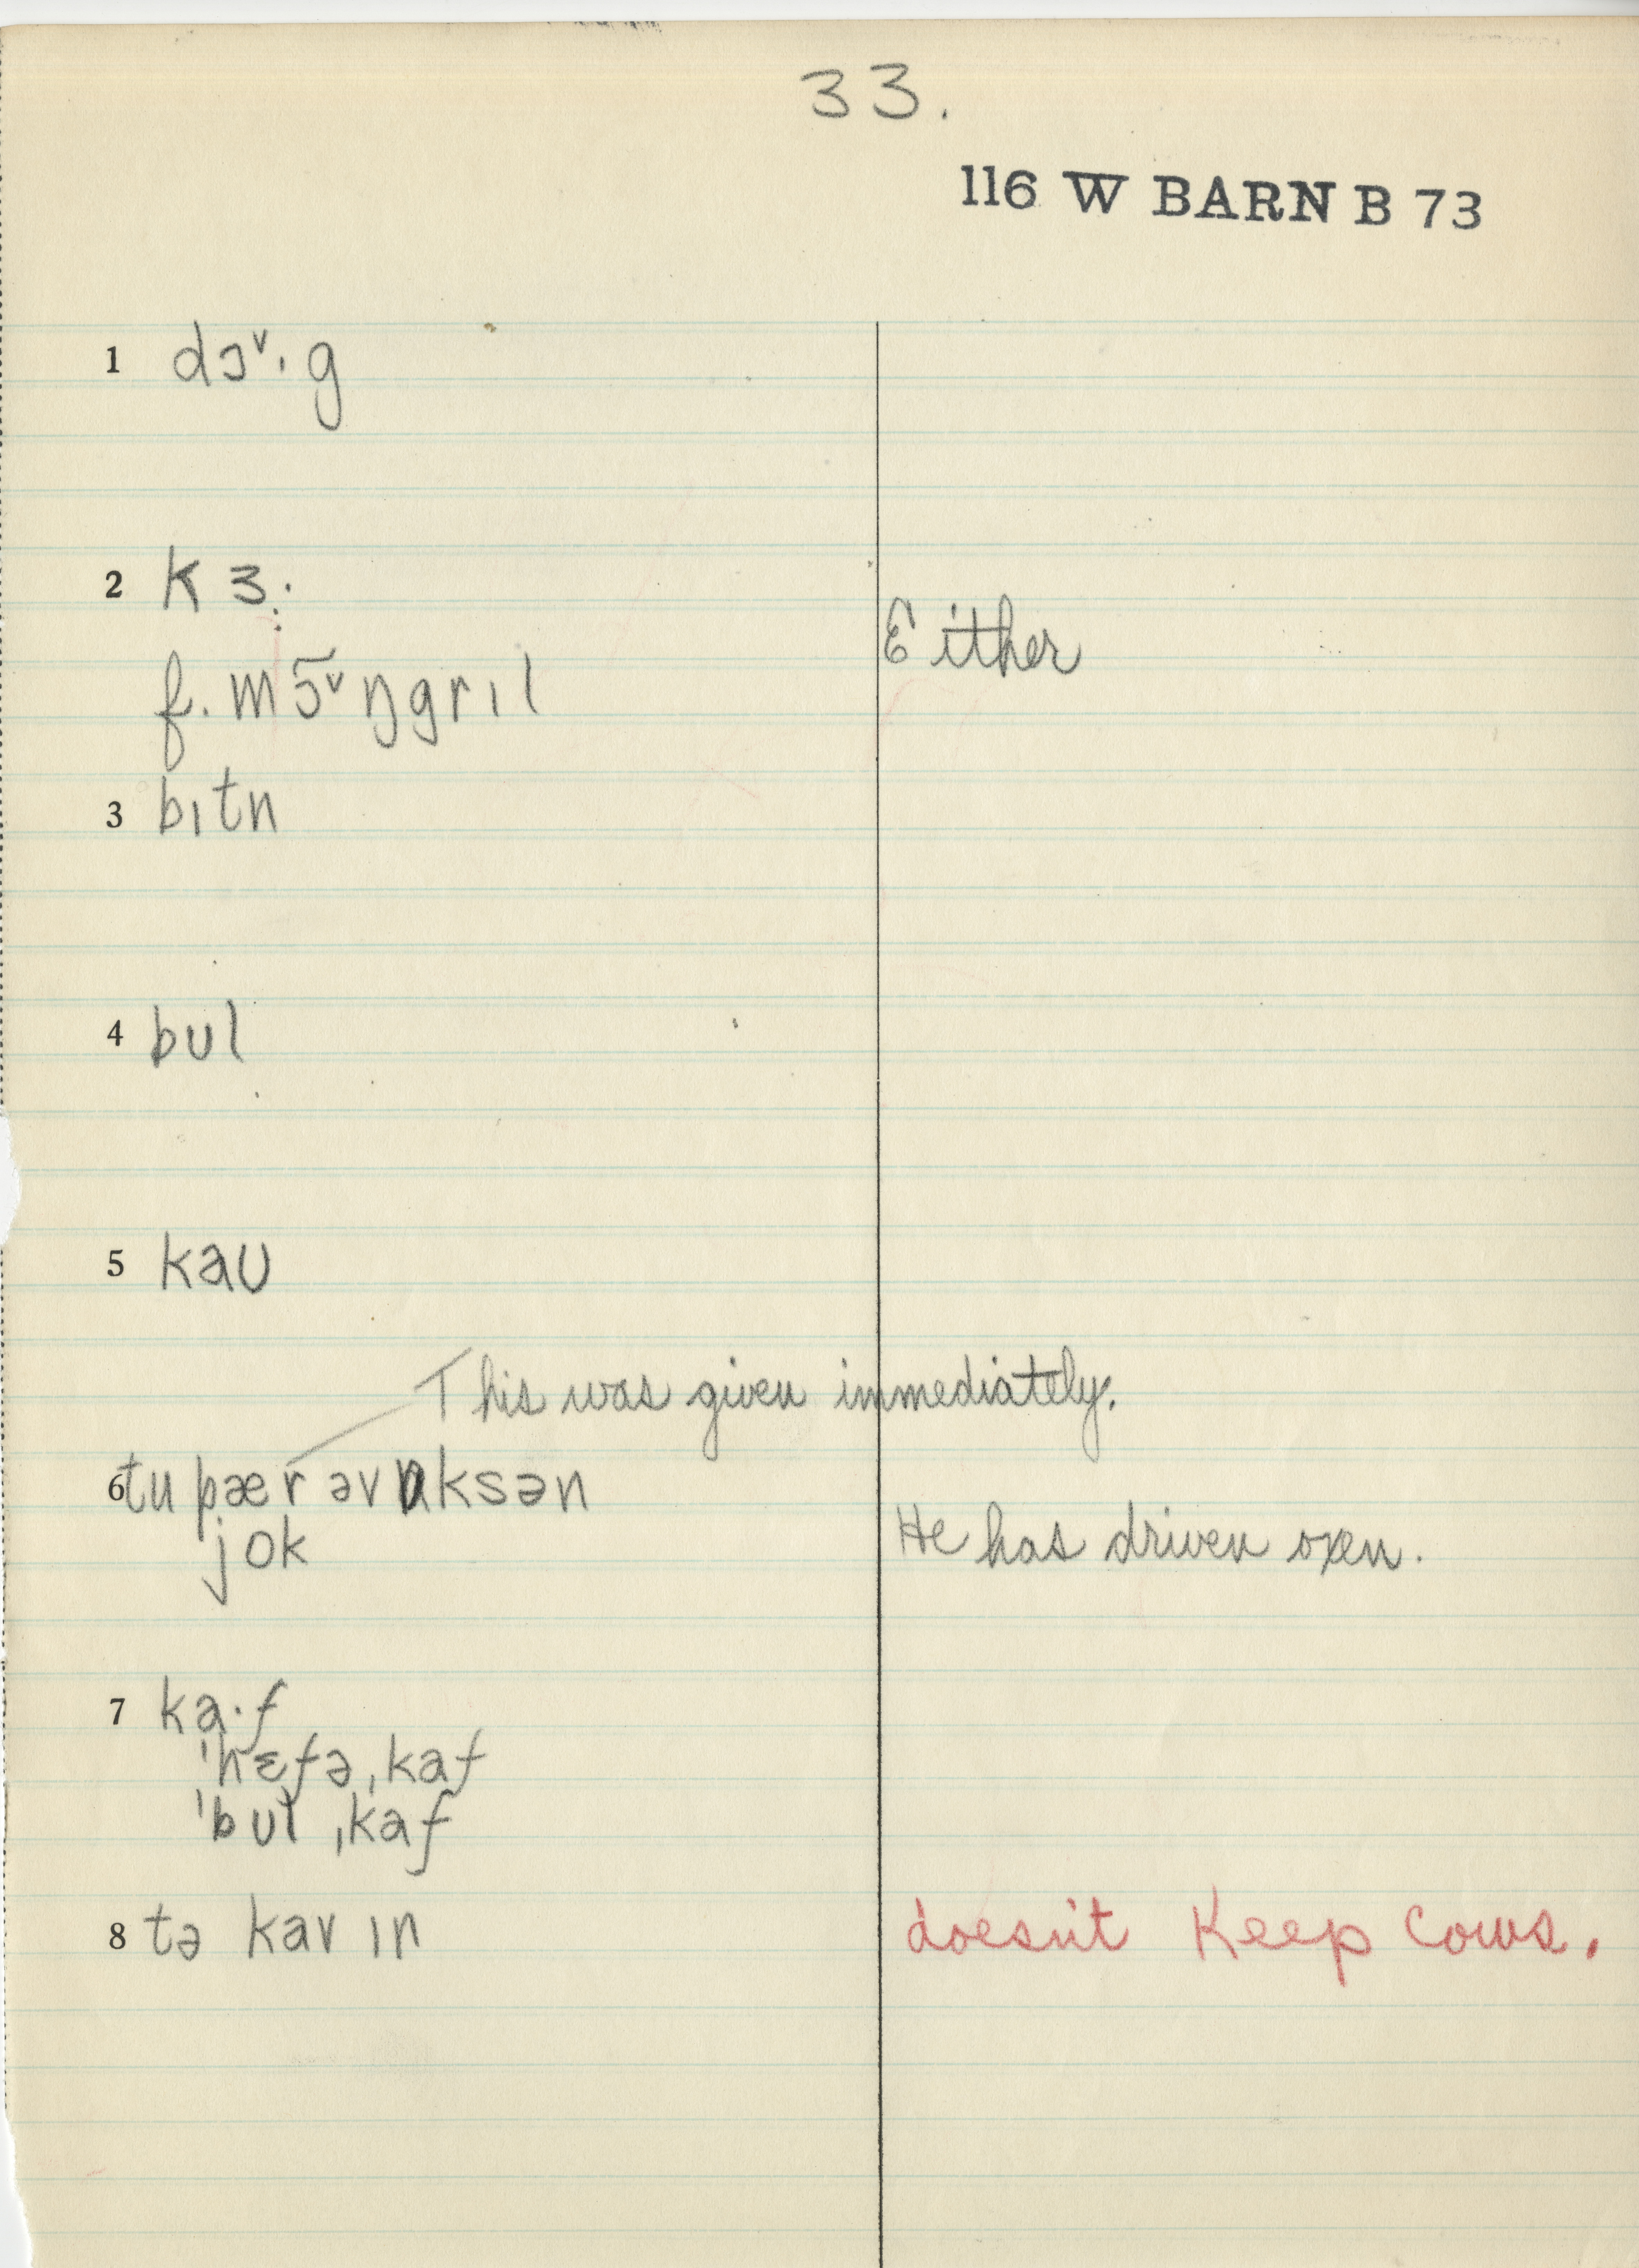 33.
116 W BARN B 73
1 dɔˇ·g
2 kɜ·
Either
f. mɔ̃ˇŋgrɪl
3 bɪtn
4 bʊl
5 kaʊ
This was given immediately.
6 tu pær əv ɒksən
jok
He has driven oxen.
7 ka·f
ˈhɛfə ˌkaf
ˈbʊl ˌkaf
8 tə kav ɪn
doesn't Keep Cows.